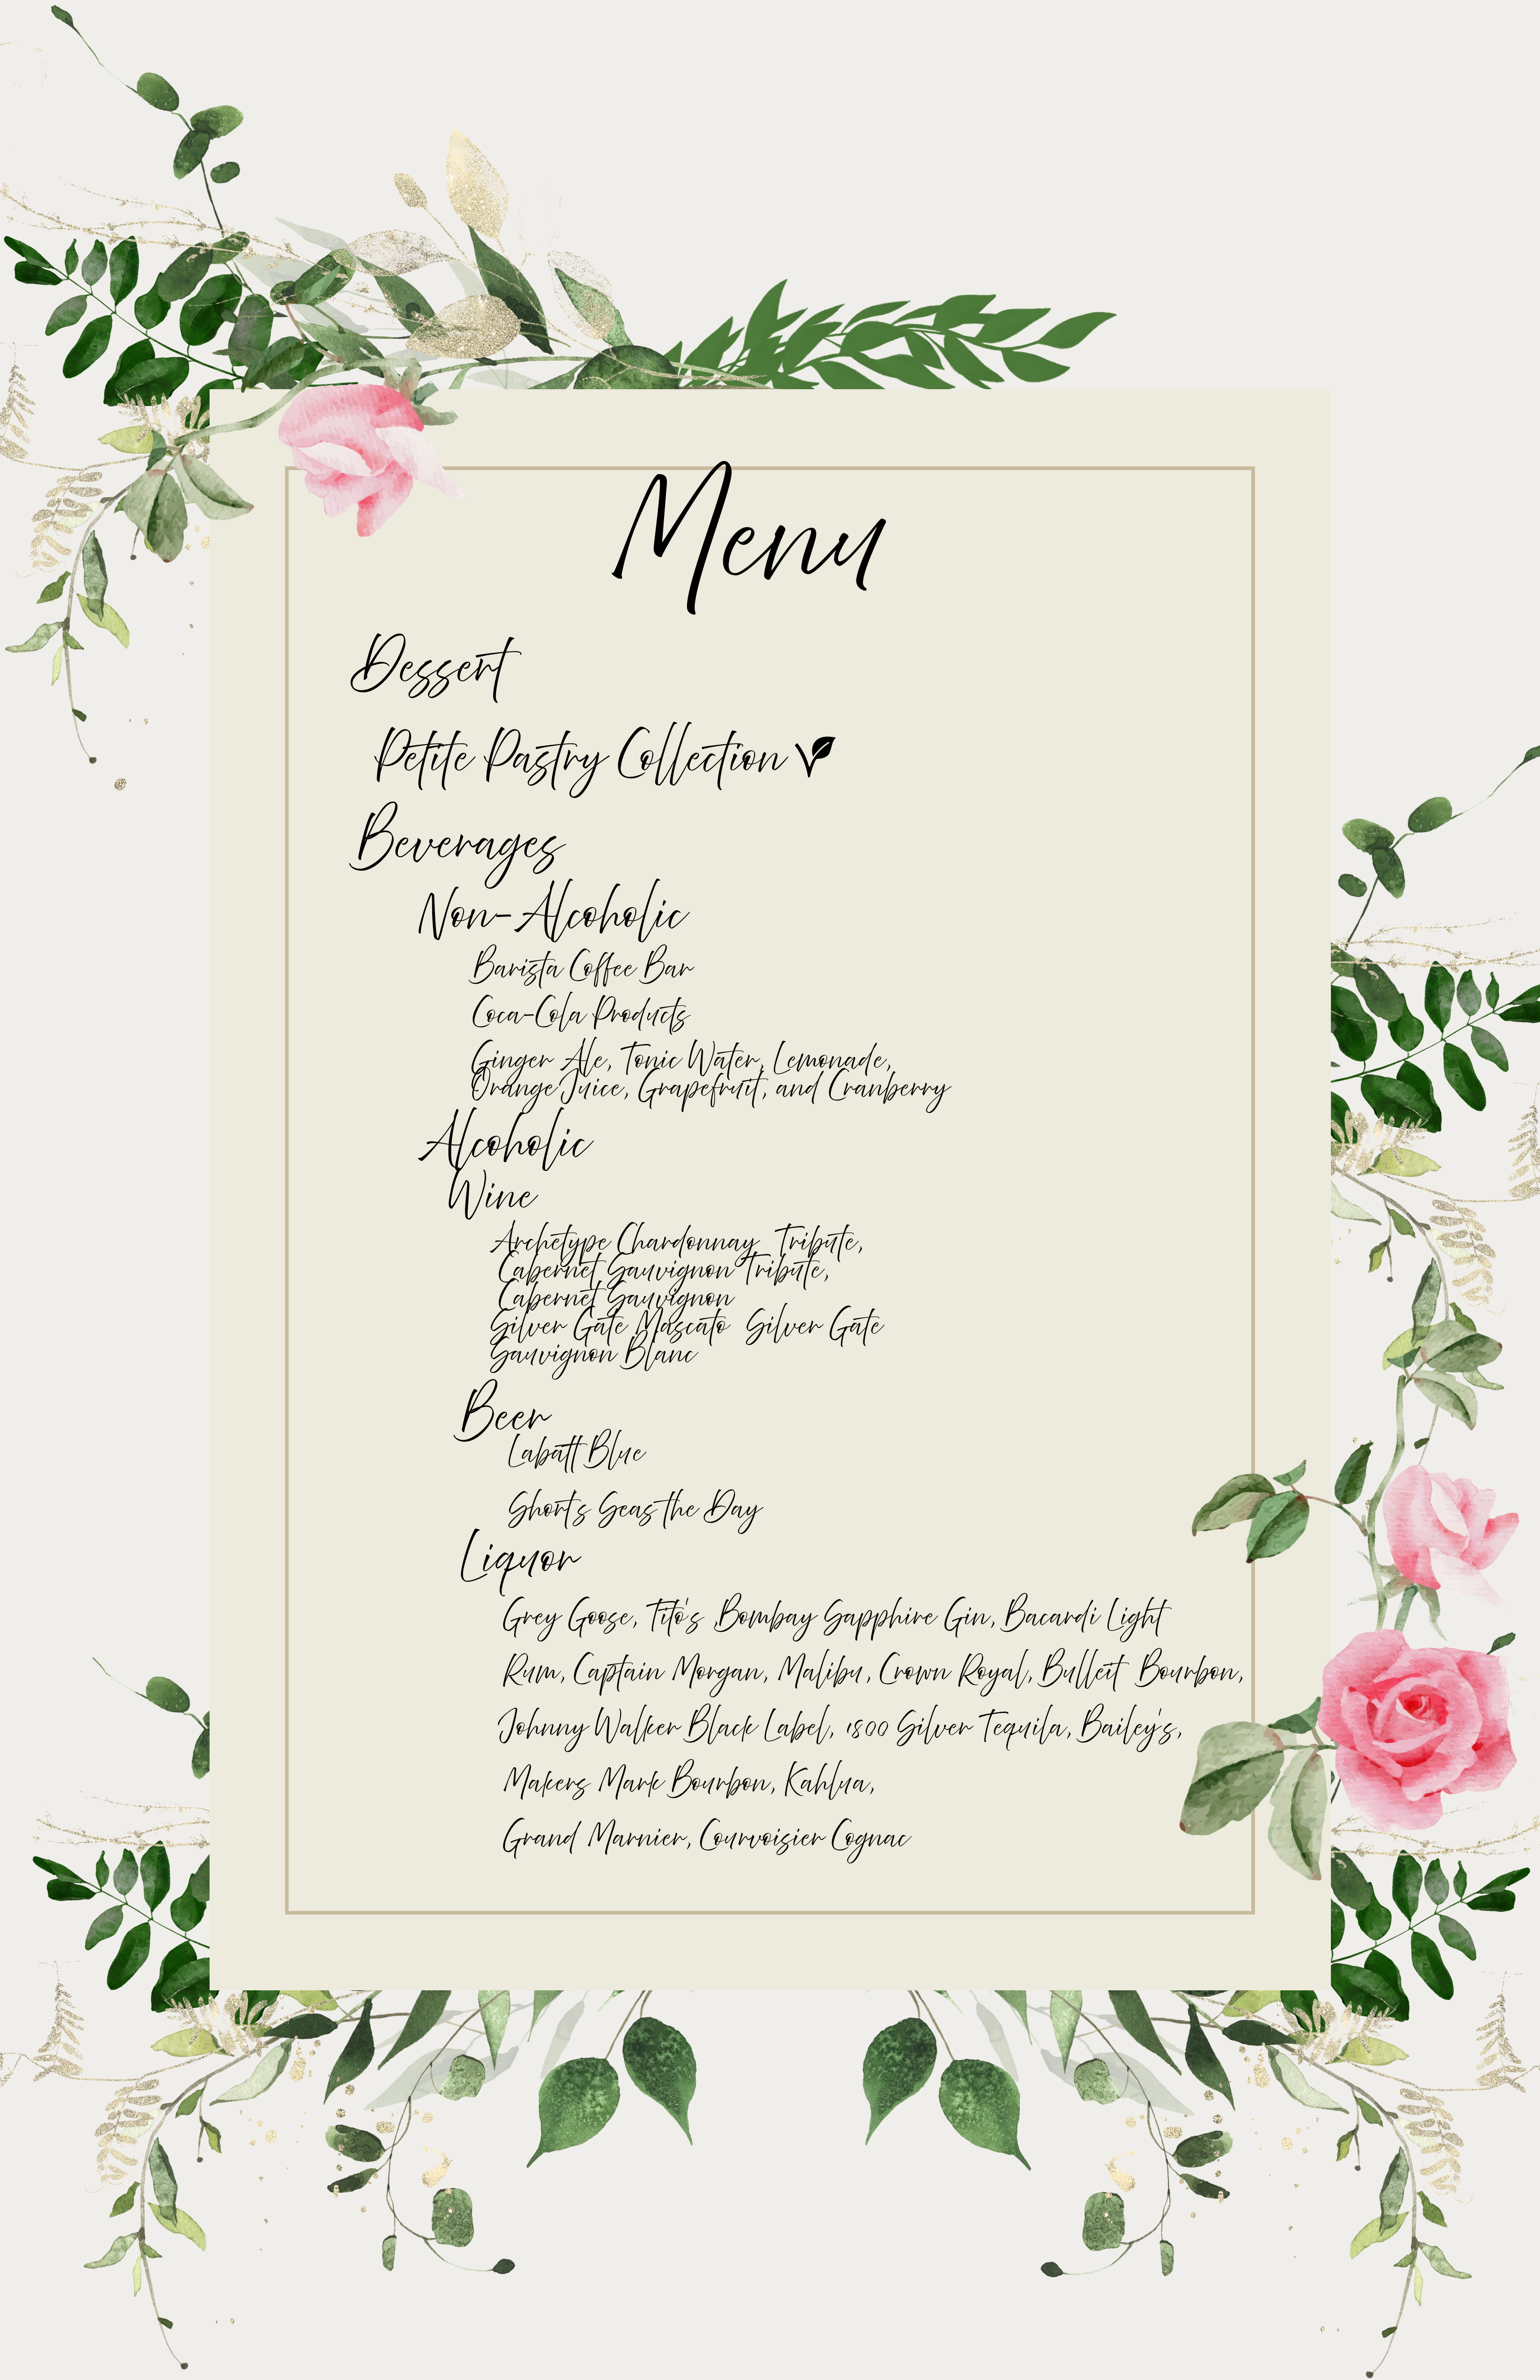 Menu
Dessert
Petite Pastry Collection
Beverages
Non-Alcoholic
Barista Coffee Bar
Coca-Cola Products
Ginger Ale, Tonic Water, Lemonade,
Orange Juice, Grapefruit, and Cranberry
Alcoholic
Wine
Archetype Chardonnay Tribute,
Cabernet Sauvignon Tribute,
Cabernet Sauvignon
Silver Gate Moscato Silver Gate
Sauvignon Blanc
Beer
Labatt Blue
Short's Seas the Day
Liquor
Grey Goose, Tito's ,Bombay Sapphire Gin, Bacardi Light
Rum, Captain Morgan, Malibu, Crown Royal, Bulleit Bourbon,
Johnny Walker Black Label, 1800 Silver Tequila, Bailey's,
Makers Mark Bourbon, Kahlua,
Grand Marnier, Courvoisier Cognac